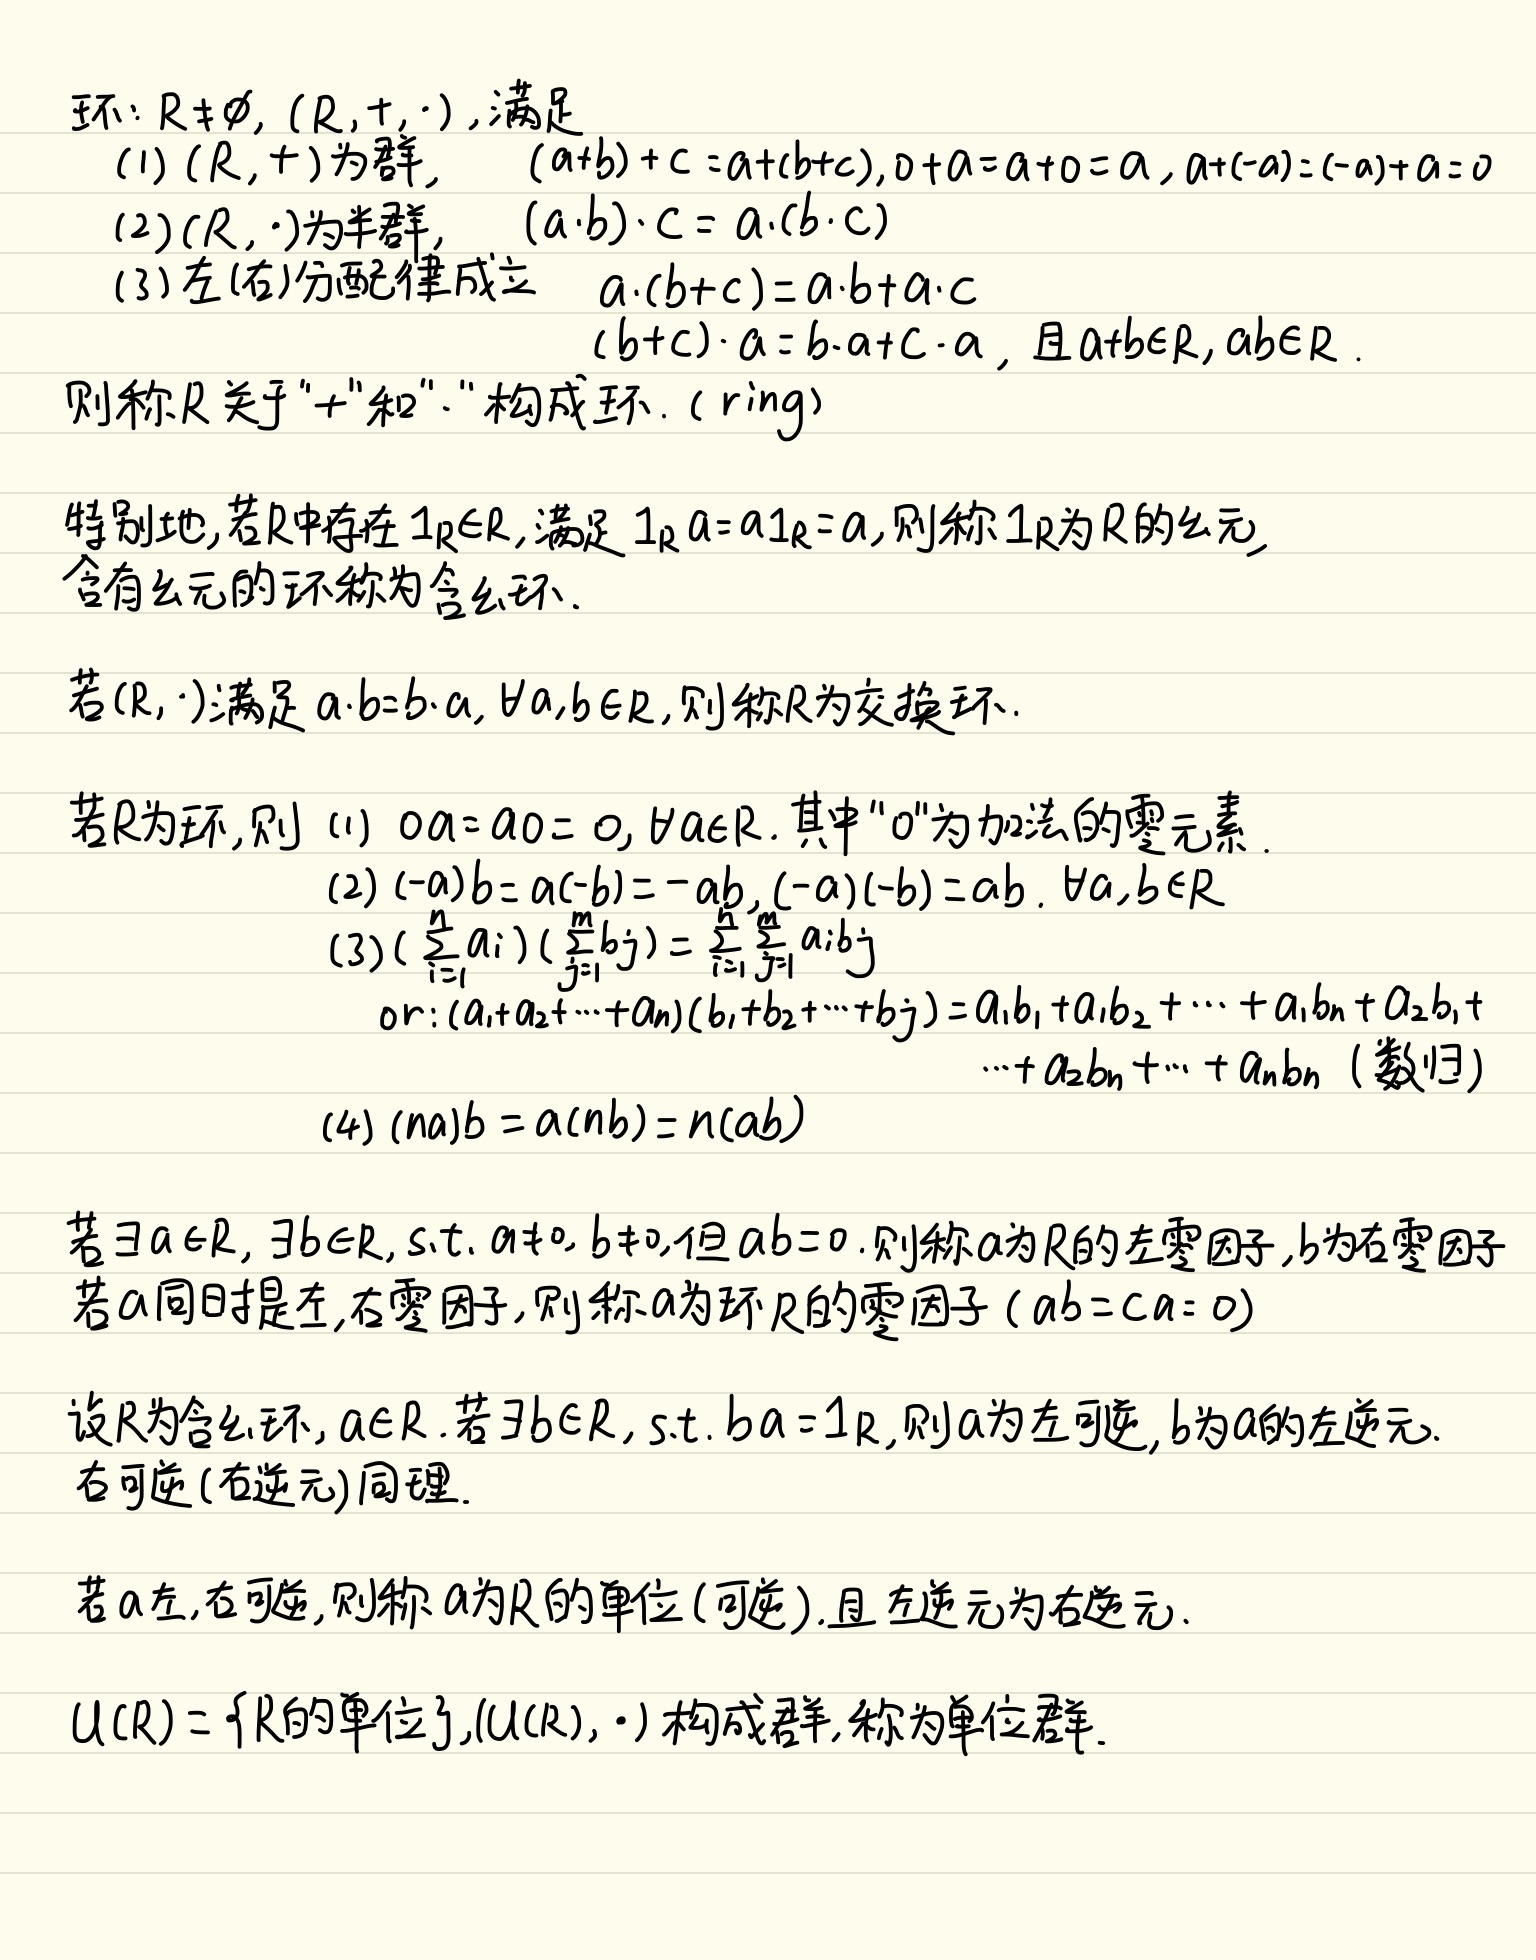 环: R≠∅, (R, +, ·), 满足
(1) (R, +)为群, (a+b)+c=a+(b+c), 0+a=a+0=a, a+(-a)=(-a)+a=0
(2) (R, ·)为半群, (a·b)·c = a·(b·c)
(3) 左(右)分配律成立 a·(b+c)=a·b+a·c
(b+c)·a=b·a+c·a, 且a+b∈R, ab∈R.
则称R关于"+"和"·"构成环. (ring)
特别地,若R中存在1_R∈R,满足 1_R a=a1_R=a,则称1_R为R的幺元,
含有幺元的环称为含幺环.
若(R, ·)满足 a·b=b·a, ∀a,b∈R,则称R为交换环.
若R为环,则 (1) 0a=a0=0, ∀a∈R. 其中"0"为加法的零元素.
(2) (-a)b=a(-b)=-ab, (-a)(-b)=ab. ∀a,b∈R
(3) (∑_{i=1}^{n} ai)(∑_{j=1}^{m} bj)=∑_{i=1}^{n} ∑_{j=1}^{m} aibj
or: (a₁+a₂+…+an)(b₁+b₂+…+bj)=a₁b₁+a₁b₂+…+a₁bn+a₂b₁+
…+a₂bn+…+anbn (数归)
(4) (na)b=a(nb)=n(ab)
若∃a∈R, ∃b∈R, s.t. a≠0, b≠0,但ab=0.则称a为R的左零因子,b为右零因子
若a同时是左,右零因子,则称a为环R的零因子(ab=ca=0)
设R为含幺环, a∈R.若∃b∈R, s.t. ba=1_R,则a为左可逆,b为a的左逆元.
右可逆(右逆元)同理.
若a左,右可逆,则称a为R的单位(可逆).且左逆元为右逆元.
U(R)={R的单位},(U(R), ·)构成群,称为单位群.